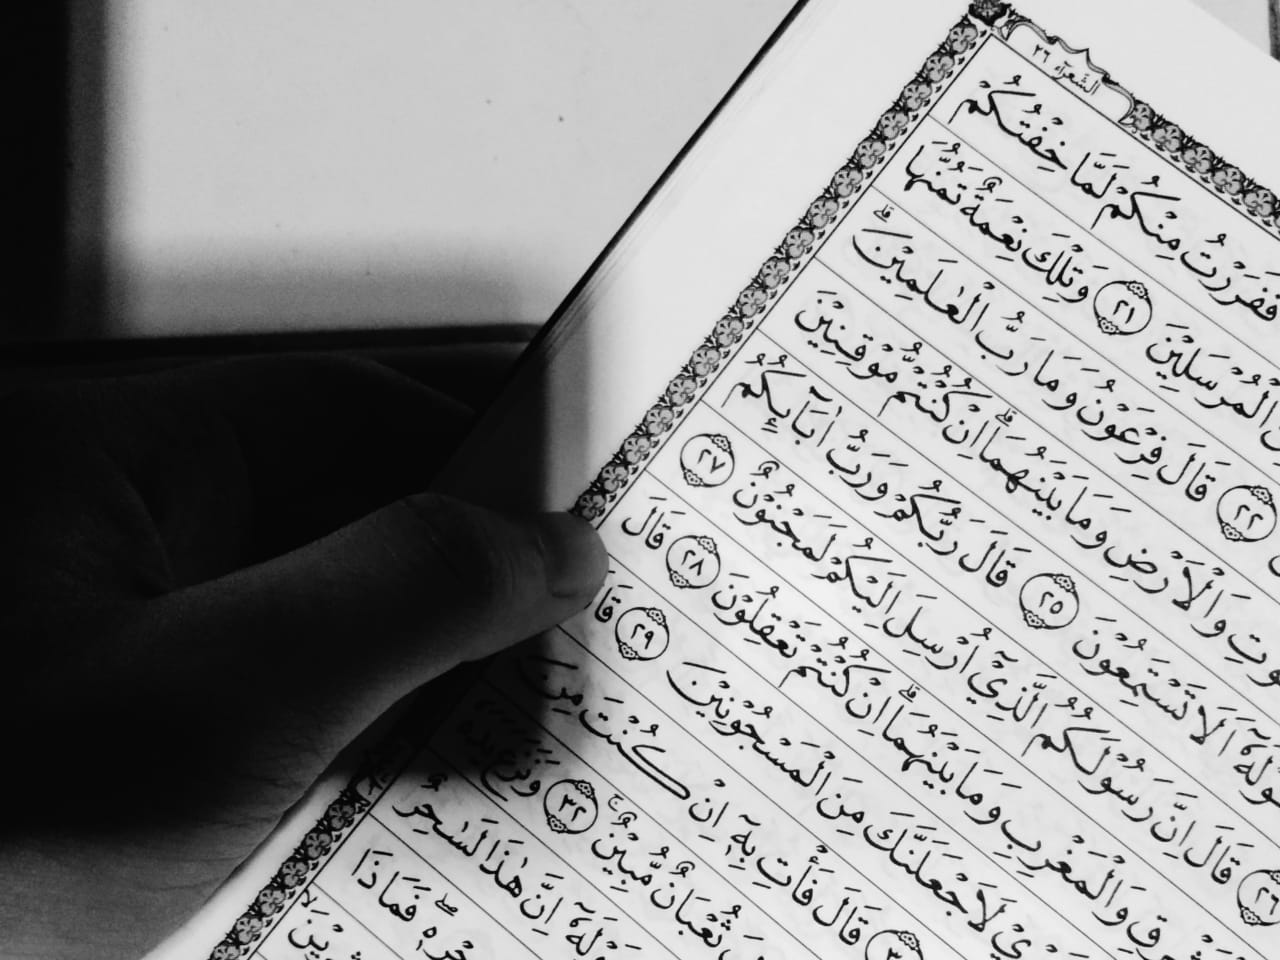 الشعرآء ٢٦
فَفَرَرْتُ مِنْكُمْ لَمَّا خِفْتُكُمْ
الْمُرْسَلِيْنَ ٢١ وَتِلْكَ نِعْمَةٌ تَمُنُّهَا
٢٢ قَالَ فِرْعَوْنُ وَمَا رَبُّ الْعٰلَمِيْنَ
وَالْاَرْضِ وَمَا بَيْنَهُمَا اِنْ كُنْتُمْ مُّوْقِنِيْنَ
اَلَا تَسْتَمِعُوْنَ ٢٥ قَالَ رَبُّكُمْ وَرَبُّ اٰبَآئِكُمُ
٢٦ قَالَ اِنَّ رَسُوْلَكُمُ الَّذِيْٓ اُرْسِلَ اِلَيْكُمْ لَمَجْنُوْنٌ ٢٧
وَالْمَغْرِبِ وَمَا بَيْنَهُمَا اِنْ كُنْتُمْ تَعْقِلُوْنَ ٢٨ قَالَ
لَاَجْعَلَنَّكَ مِنَ الْمَسْجُوْنِيْنَ ٢٩
قَالَ فَأْتِ بِهٖٓ اِنْ كُنْتَ مِنَ
ثُعْبَانٌ مُّبِيْنٌ ٣٢ وَنَزَعَ يَدَهٗ
اِنَّ هٰذَا لَسٰحِرٌ
فَمَاذَا